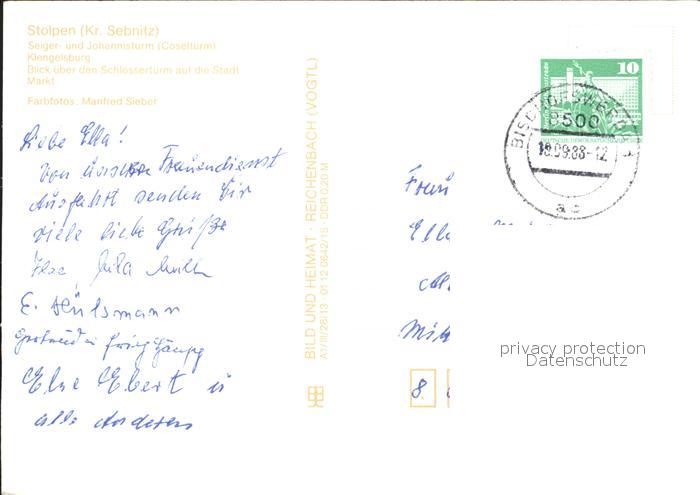 Stolpen (Kr. Sebnitz)
Seiger- und Johannisturm (Coselturm)
Klengelsburg
Blick über den Schlösserturm auf die Stadt
Markt
Farbfotos: Manfred Sieber
Liebe Ella!
Von unserer Frauendienst
Ausfahrt senden Dir
viele liebe Grüße
E. Hülsmann
Else Ebert u
alle Anderen
BILD UND HEIMAT · REICHENBACH (VOGTL)
A1/III/26/13 01 12 0642/15 DDR 0,20 M
10
BISCHOFSWERDA 1
8500
18.09.88-12
Frau
Ella
8.
privacy protection
Datenschutz